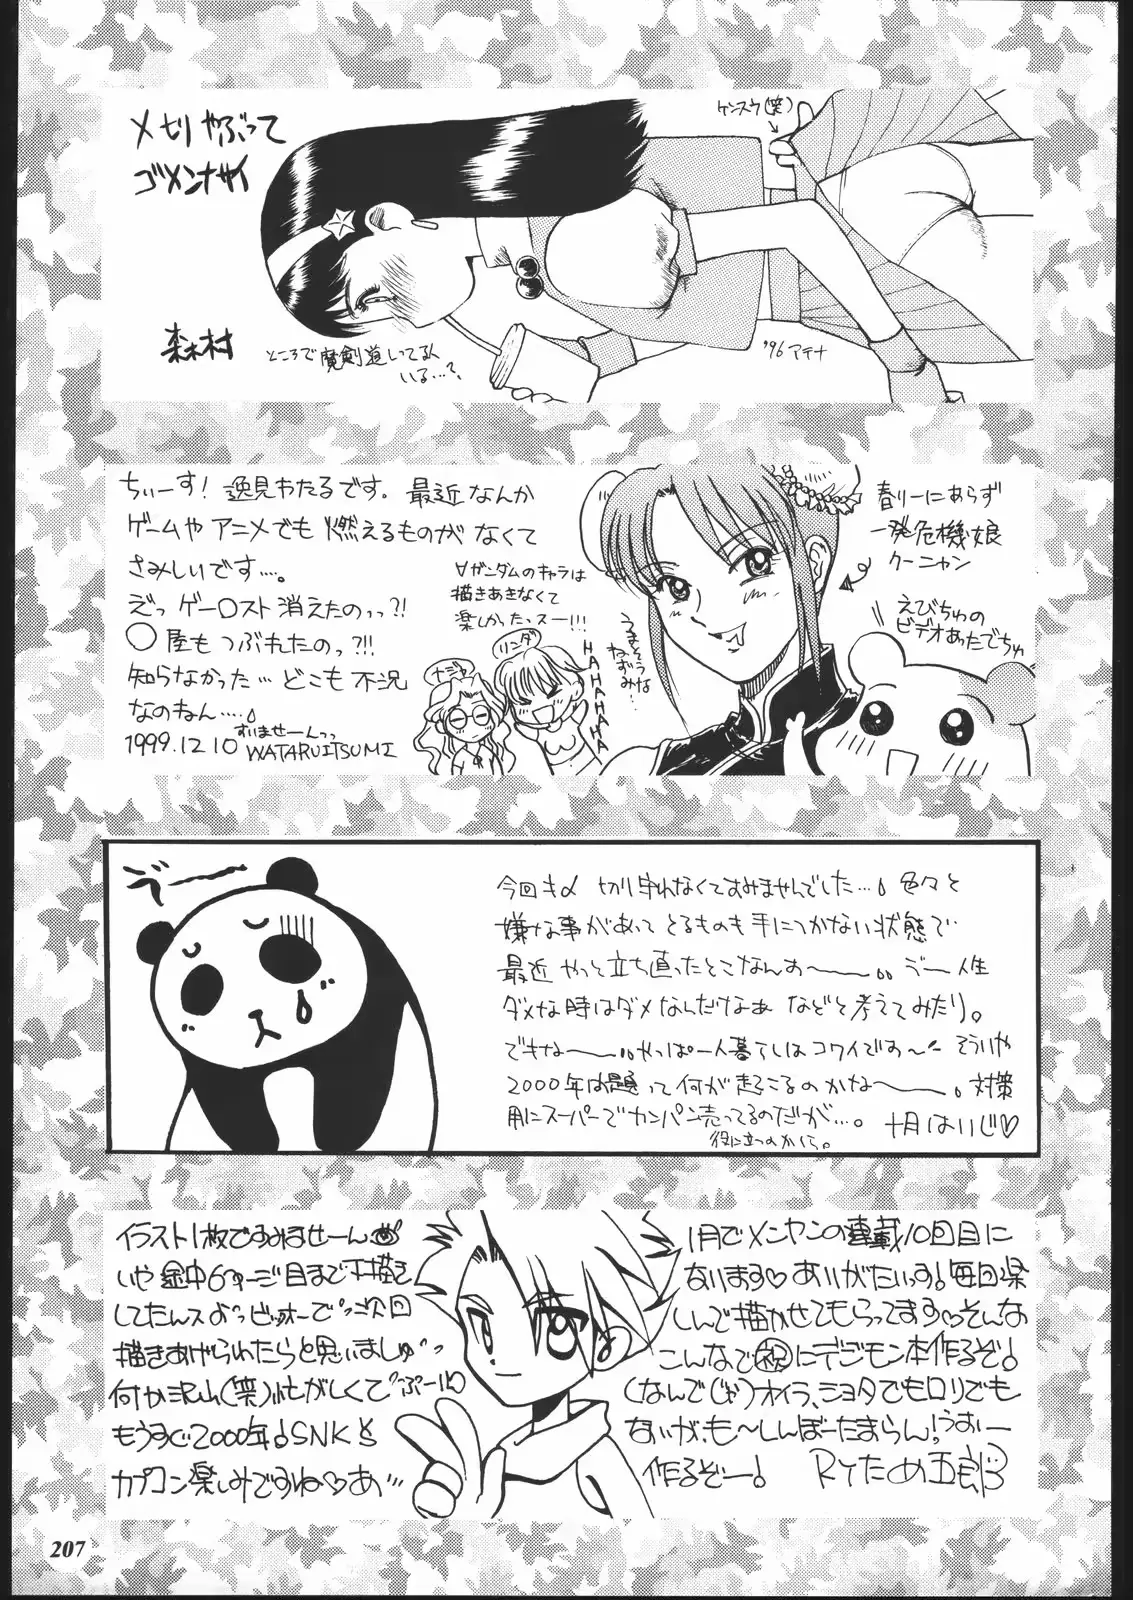 メ切りやぶって
ゴメンナサイ
森木村
ケンスウ(笑)
ところで魔剣道しってる人
いる…?
'96 アテナ
ちぃーす! 逸見わたるです。最近なんか
ゲームやアニメでも燃えるものがなくて
さみしいです…。
えっゲー○スト消えたのっっ?!
○屋もつぶれたの?!!
知らなかった…どこも不況
なのねん…。
すいませーんっっ
1999.12.10 WATARU ITSUMI
∀ガンダムのキャラは
描きあきなくて
楽しかたっスー!!!
リンダ
ナジラ
HAHAHAHAHA
うまそうな
ねずみ…
春リーにあらず
一発危機娘
クーニャン
えびちゅの
ビデオあったでちゅ
づーー
今回も〆切り守れなくてすみませんでした…。色々と
嫌な事があってとるものも手につかない状態で
最近やっと立ち直ったとこなんすー。 うー人生
ダメな時はダメなんだけなぁ などと考えてみたり。
できなー。やっぱ一人暮らしはコワイですー そういや
2000年問題って何が起こるのかなー。対策
用にスーパーでカンパン売ってるのだが…。十月はいじ♡
役に立つのかして。
イラスト1枚ですみませーん
いや途中6ページ目まで下描き
してたんスよっ
描きあげられたらと思いましゅっ
何か沢山(笑)忙がしくてぷー
もうすぐ2000年!SNKも
カプコン楽しみですね♡あ…
1月でメンヤンの連載10回目に
なります♡ありがたいっす!毎回楽
しんで描かせてもらってます♡そんな
こんなで祝にデジモン本作るぞ!
(なんでじゃ)オイラ、ショタでもロリでも
ないが、も〜しんぼーたまらん!うおー
作るぞー! RYため五郎
207